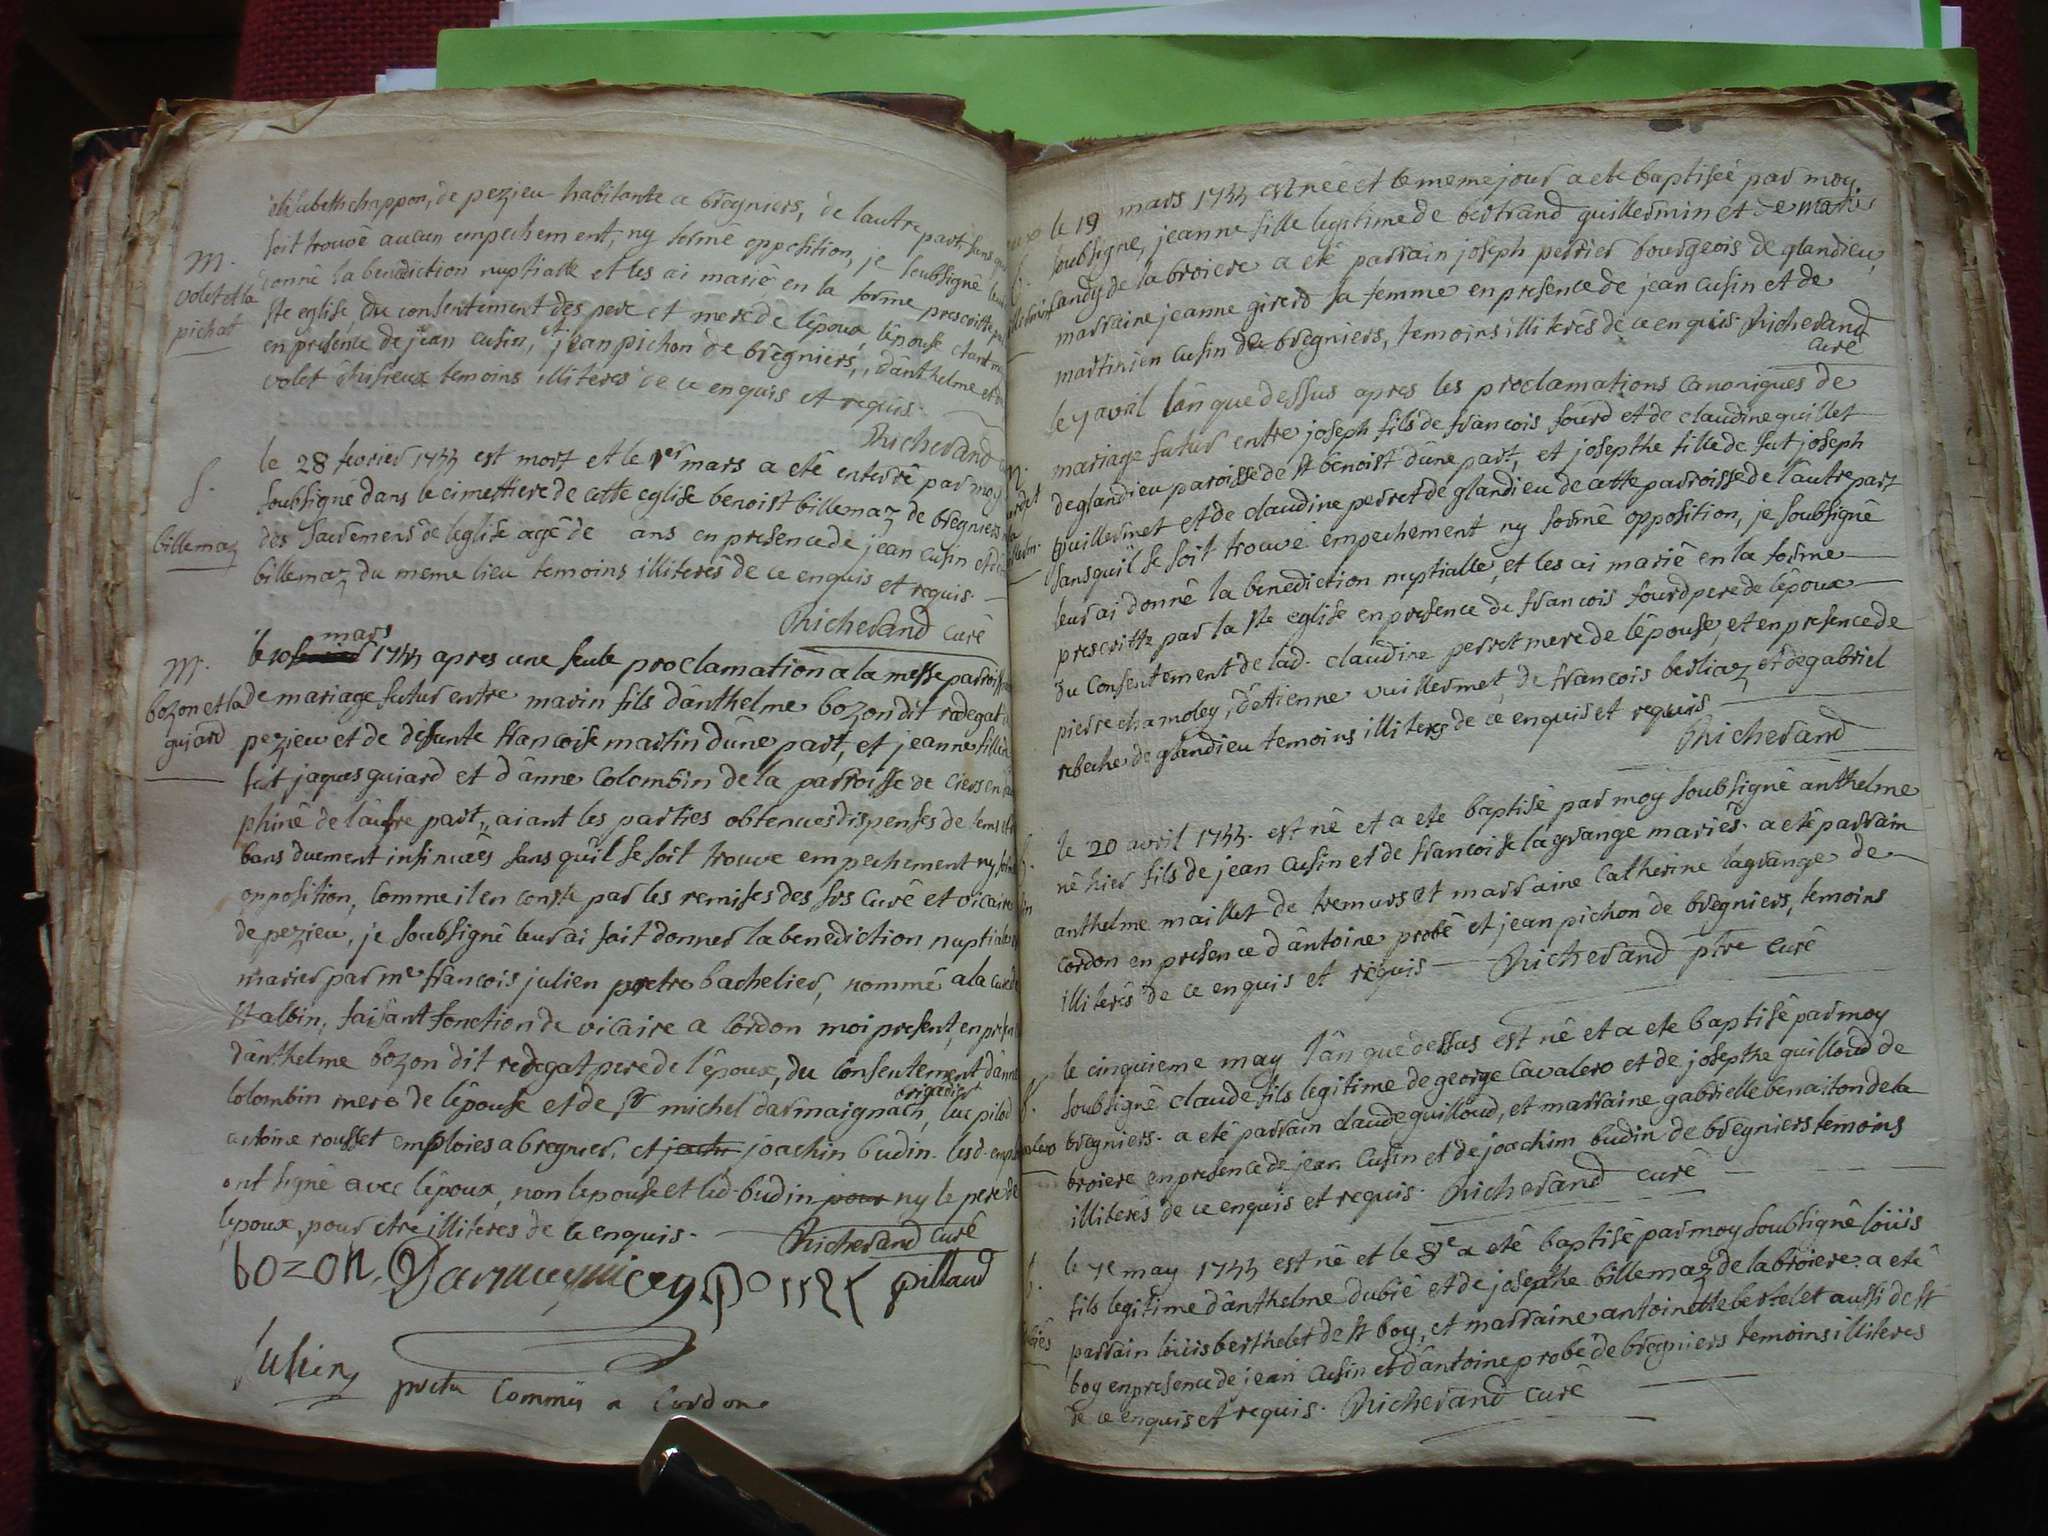 elisabeth chappon, de pezieu habitante a bregniers, de lautre part sans
soit trouvé aucun empechement, ny formé opposition, je soubsigné
M.
donné la benediction nuptialle et les ai marié en la forme prescritte
volet et la
ste eglise, du consentement des pere et mere de l'époux, l'épouse etant
pichat
en presence de jean cusin, et jean pichon de bregniers, d'anthelme et
volet temoins illiteres de ce enquis et requis.
Richerand
S.
billemaz
le 28 fevrier 1744 est mort et le 1er mars a eté enterré par moy
soubsigné dans le cimettiere de cette eglise benoist billemaz de bregniers
des sacremens de leglise agé de ans en presence de jean cusin et
billemaz du meme lieu temoins illiterés de ce enquis et requis.
Richerand curé
M.
bozon et la
guiard
mars
le 10 1744 apres une seule proclamation a la messe
de mariage futur entre marin fils d'anthelme bozon dit redegat
pezieu et de defunte francoise martin d'une part, et jeanne fille
fut jaques guiard et d'anne Colombin de la parroisse de Ciers en
phiné de l'autre part, aiant les parties obtenues dispenses de tems et
bans duement insinuées sans qu'il se soit trouvé empechement ny
opposition, comme il en conste par les remises des srs curé et vicaire
de pezieu, je soubsigné leur ai fait donner la benediction nuptiale
marier par me francois julien pretre bachelier, nommé a la cure
st albin, faisant fonction de vicaire a cordon moi present, en
d'anthelme bozon dit redegat pere de l'époux, du consentement d'anne
brigadier
Colombin mere de l'épouse et de sr michel darmaignach, luc pilod
antoine rousset emploies a bregnier, et joachin budin. lesd.
ont signé avec l'époux, non lepouse et led. budin ny le pere de
lepoux, pour etre illiteres de ce enquis.
Richerand curé
bozon. pillaud
Julien
pretre Commis a Cordon
le 19 mars 1744 est née et le meme jour a ete baptisée par moy
soubsigné, jeanne fille legitime de bertrand guillermin et de marie
candy de la broiere a eté parrain joseph perrier bourgeois de glandieu,
marraine jeanne girerd sa femme en presence de jean cusin et de
martinien cusin de bregniers, temoins illiterés de ce enquis. Richerand
curé
le 7 avril l'an que dessus apres les proclamations canoniques de
mariage futur entre joseph fils de francois fourd et de claudine guillet
de glandieu paroisse de st benoist d'une part, et josepthe fille de fut joseph
vuillermet et de claudine perret de glandieu de cette parroisse de l'autre part
sans qu'il se soit trouvé empechement ny formé opposition, je soubsigné
leur ai donné la benediction nuptialle, et les ai marié en la forme
prescritte par la ste eglise en presence de francois fourd pere de lépoux
du Consentement de lad. claudine perret mere de l'épouse, et en presence de
pierre chamoley, d'etienne vuillermet, de francois berliaz et de gabriel
rebeche de glandieu temoins illiterés de ce enquis et requis
Richerand
le 20 avril 1744. est né et a eté baptisé par moy soubsigné anthelme
né hier fils de jean cusin et de francoise lagrange mariés. a eté parrain
anthelme maillet de tremurs et marraine Catherine lagrange de
cordon en presence d'antoine probé et jean pichon de bregniers, temoins
illiterés de ce enquis et requis Richerand ptre curé
le cinquieme may l'an que dessus est né et a eté baptisé par moy
soubsigné claude fils legitime de george Cavalero et de josepthe guilloud de
bregniers. a eté parrain claude guilloud, et marraine gabrielle benaiton de la
broiere en presence de jean Cusin et de joachim budin de bregniers temoins
illiterés de ce enquis et requis. Richerand curé
le 7e may 1744 est né et le 8e a eté baptisé par moy soubsigné loüis
fils legitime d'anthelme dubié et de josepthe billemaz de la broiere. a eté
parrain loüis berthelet de st boy, et marraine antoinette bertelet aussi de st
boy en presence de jean Cusin et d'antoine probé de bregniers temoins illiteres
de ce enquis et requis. Richerand curé